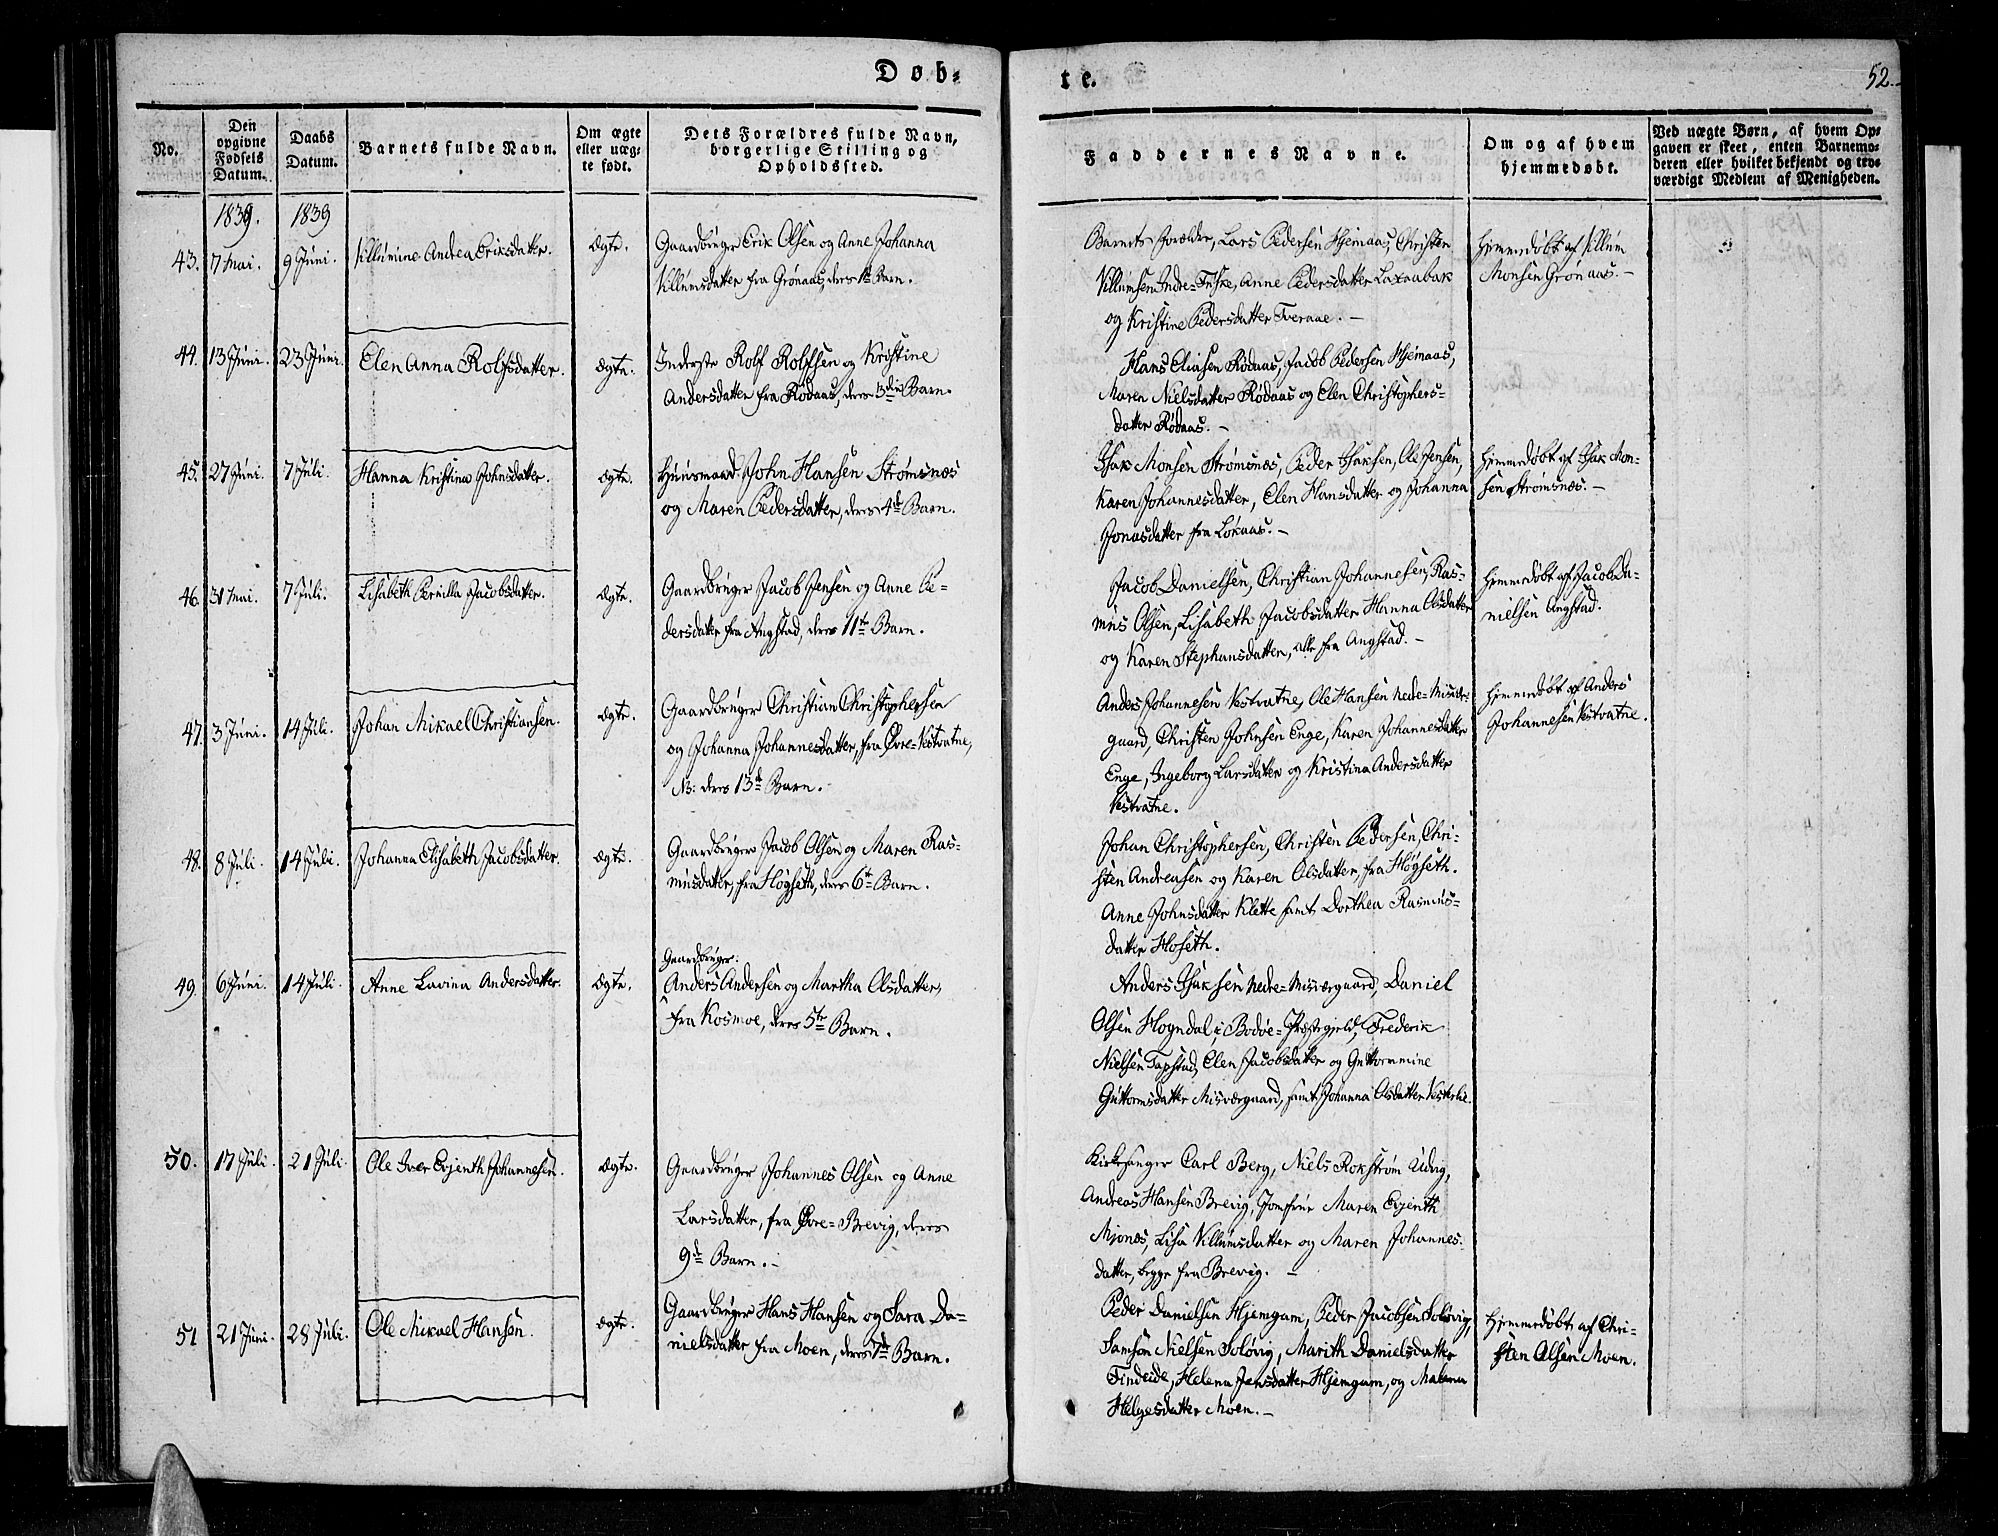 Døb-
te.
52.
No.
Den opgivne Fødsels Datum.
Daabs Datum.
Barnets fulde Navn.
Om ægte eller uægte født.
Dets Forældres fulde Navn, borgerlige Stilling og Opholdssted.
Faddernes Navne.
Om og af hvem hjemmedøbt.
Ved uægte Børn, af hvem Opgaven er skeet, enten Barnemoderen eller hvilket bekjendt og troværdigt Medlem af Menigheden.
1839. 1839
43. 7 Mai. 9 Juni. Villumine Andrea Eriksdatter. Ægte.
Gaardbruger Erik Olsen og Anne Johanna
Villumsdatter fra Grønaas, deres 1ste Barn.
Barnets Forældre, Lars Pedersen Hjemaas, Christen
Villumsen Indre=Fiske, Anne Pedersdatter Laxaabak
og Kristine Pedersdatter Tveraae. –
Hjemmedøbt af Villum
Monsen Grønaas. –
44. 13 Juni. 23 Juni. Elen Anna Rolfsdatter. Ægte.
Inderste Rolf Rolfsen og Kristine
Andersdatter fra Rødaas, deres 3die Barn.
Hans Eliasen Rødaas, Jacob Pedersen Hjemaas,
Maren Nielsdatter Rødaas og Elen Christophers=
datter Rødaas. –
45. 27 Juni. 7 Juli. Hanna Kristina Johnsdatter. Ægte.
Huusmand John Hansen Strømsnæs
og Maren Pedersdatter, deres 4de Barn.
Isak Monsen Strømsnæs, Peder Isaksen, Ole Jensen,
Karen Johannesdatter, Elen Hansdatter og Johanna
Jonasdatter fra Løkaas. –
Hjemmedøbt af Isak Mon-
sen Strømsnæs. –
46. 31 Mai. 7 Juli. Lisabeth Pernilla Jacobsdatter. Ægte.
Gaardbruger Jacob Jensen og Anne Pe=
dersdatter fra Angstad, deres 11te Barn.
Jacob Danielsen, Christian Johannesen, Ras=
mus Olsen, Lisabeth Jacobsdatter Hanna Olsdatter
og Karen Stephansdatter, alle fra Angstad. –
Hjemmedøbt af Jacob Da=
nielsen Angstad.
47. 3 Juni. 14 Juli. Johan Mikael Christiansen. Ægte.
Gaardbruger Christian Christophersen
og Johanna Johannesdatter, fra Øvre=Vestvatne,
N: deres 13de Barn.
Anders Johannesen Vestvatne, Ole Hansen Nedre=Misvær=
gaard, Christen Johnsen Enge, Karen Johannesdatter
Enge, Ingeborg Larsdatter og Kristina Andersdatter
Vestvatne.
Hjemmedøbt af Anders
Johannesen Vestvatne.
48. 8 Juli. 14 Juli. Johanna Elisabeth Jacobsdatter. Ægte.
Gaardbruger Jacob Olsen og Maren Ras=
musdatter, fra Høgseth, deres 6te Barn.
Johan Christophersen, Christen Pedersen, Chri-
sten Andreasen og Karen Olsdatter, fra Høgseth.
Anne Johnsdatter Klette samt Dorthea Rasmus=
datter Hoseth.
49. 6 Juni. 14 Juli. Anne Lavina Andersdatter. Ægte.
Gaardbruger:
Anders Andersen og Martha Olsdatter,
fra Kosmoe, deres 5te Barn.
Anders Isaksen Nedre=Misværgaard, Daniel
Olsen Hogndal i Bodøe=Præstegjeld, Frederik
Nielsen Tapstad, Elen Jacobsdatter og Guttormmine
Guttormsdatter Misværgaard, samt Johanna Olsdatter Vesterlie.
50. 17 Juli. 21 Juli. Ole Iver Evjenth Johannesen. Ægte.
Gaardbruger Johannes Olsen og Anne
Larsdatter, fra Øvre=Brevig, deres
9de Barn. –
Kirkesanger Carl Berg, Niels Rokstrøm Udvig,
Andreas Hansen Brevig, Jomfrue Maren Evjenth
Mjønæs, Lisa Villumsdatter og Maren Johannes-
datter, begge fra Brevig. –
51 21 Juni. 28 Juli. Ole Mikael Hansen. Ægte.
Gaardbruger Hans Hansen og Sara Da=
nielsdatter fra Moen, deres 7de Barn.
Peder Danielsen Hjemgam, Peder Jacobsen Soløvig,
Samson Nielsen Soløvig, Marith Danielsdatter
Tindeide, Helena Jensdatter Hjemgam, og Malena
Helgesdatter Moen. –
Hjemmedøbt af Chri-
sten Olsen Moen.